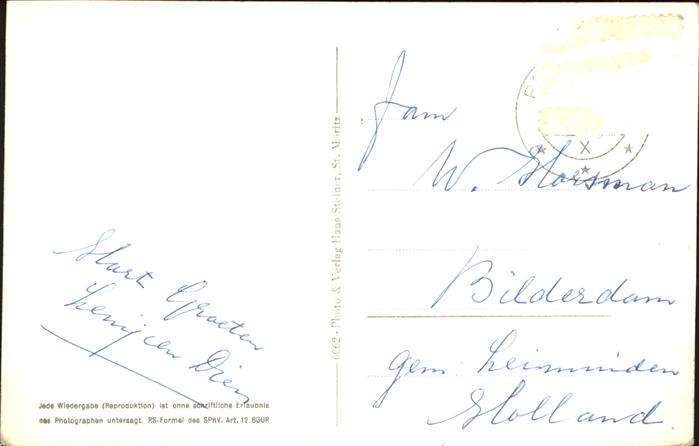 Hart Groeten
Leny en Dien
Jede Wiedergabe (Reproduktion) ist ohne schriftliche Erlaubnis
des Photographen untersagt. RS-Formel des SPHV. Art. 12 BGUR
6662 · Photo & Verlag Hans Steiner, St. Moritz
Fam
W. Horsman
Bilderdam
gem: Leimuiden
Holland
X